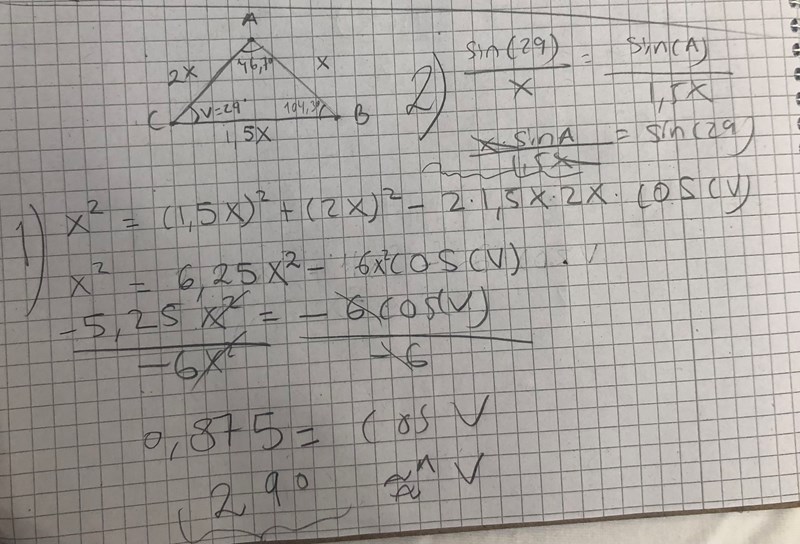 A
2x
46,7°
x
C
V=29°
104,3°
B
1,5x
2) sin(29)/x = sin(A)/1,5x
x·sinA/1,5x = sin(29)
1) x² = (1,5x)² + (2x)² - 2·1,5x·2x·cos(v)
x² = 6,25x² - 6x²cos(v)
-5,25x²/-6x² = -6cos(v)/-6
0,875 = cos V
29° ≈ V